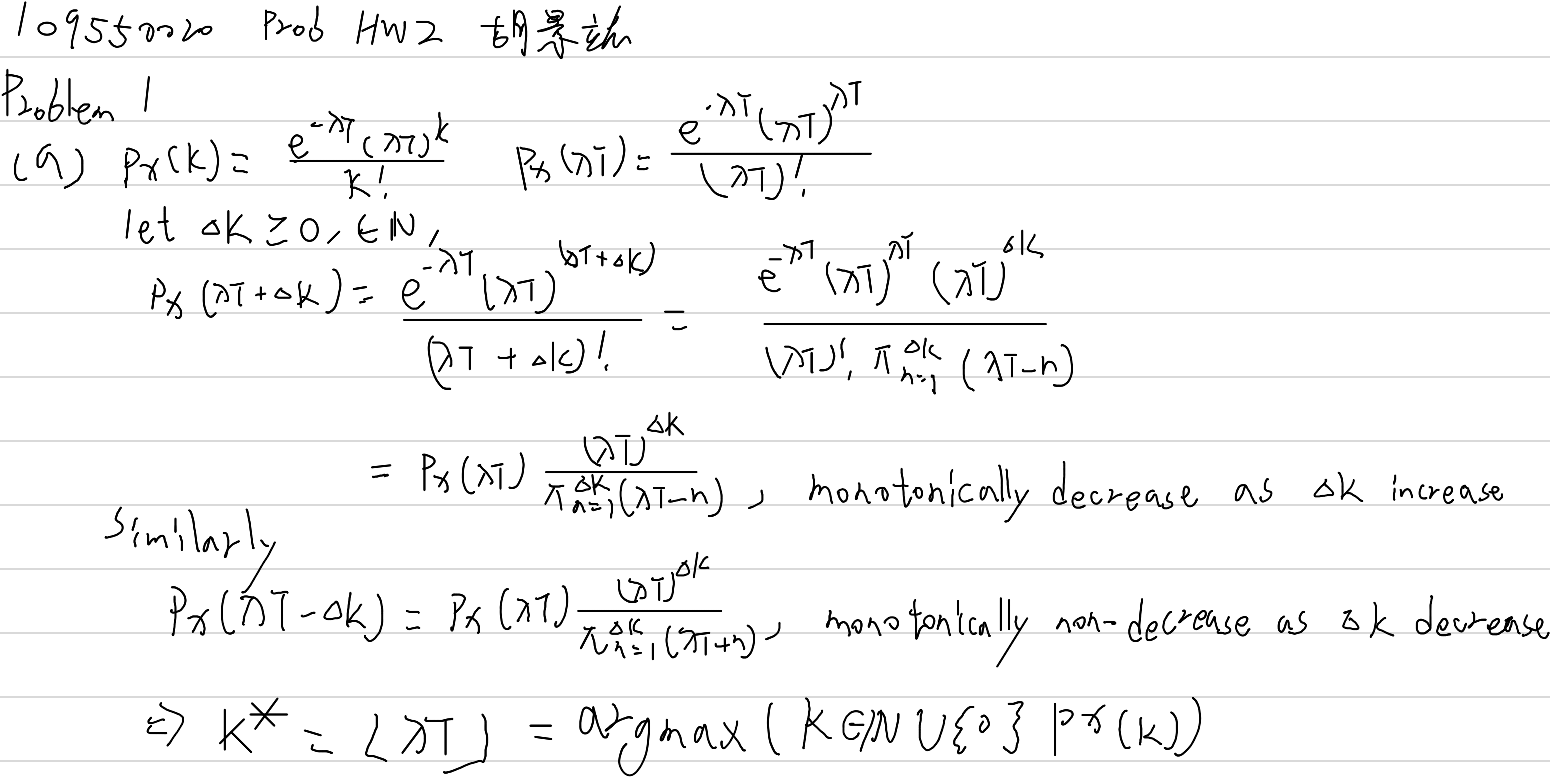 109550020 Prob HW2 胡景
Problem 1
(a) Px(k) = e^{-λT}(λT)^k / k!   Px(λT) = e^{-λT}(λT)^{λT} / (λT)!
let ΔK ≥ 0, ∈ N,
Px(λT+ΔK) = e^{-λT}(λT)^{(λT+ΔK)} / (λT+ΔK)! = e^{-λT}(λT)^{λT}(λT)^{ΔK} / (λT)! π_{n=1}^{ΔK}(λT-n)
= Px(λT) (λT)^{ΔK} / π_{n=1}^{ΔK}(λT-n), monotonically decrease as ΔK increase
Similarly
Px(λT-ΔK) = Px(λT) (λT)^{ΔK} / π_{n=1}^{ΔK}(λT+n), monotonically non-decrease as ΔK decrease
⇒ K* = ⌊λT⌋ = argmax(K∈N∪{0} Px(k))